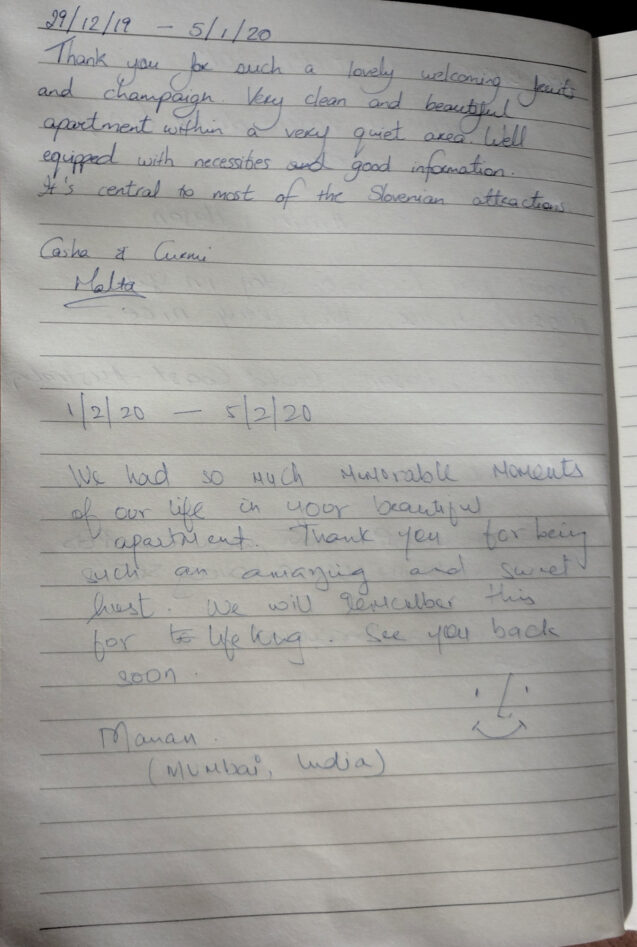 29/12/19 - 5/1/20
Thank you for such a lovely welcoming fruits
and champaign. Very clean and beautiful
apartment within a very quiet area. Well
equipped with necessities and good information.
It's central to most of the Slovenian attractions
Casha & Curmi
Malta
1/2/20 - 5/2/20
We had so much memorable moments
of our life in your beautiful
apartment. Thank you for being
such an amazing and sweet
host. We will remember this
for life long. See you back
soon.
Manan.
(Mumbai, India)